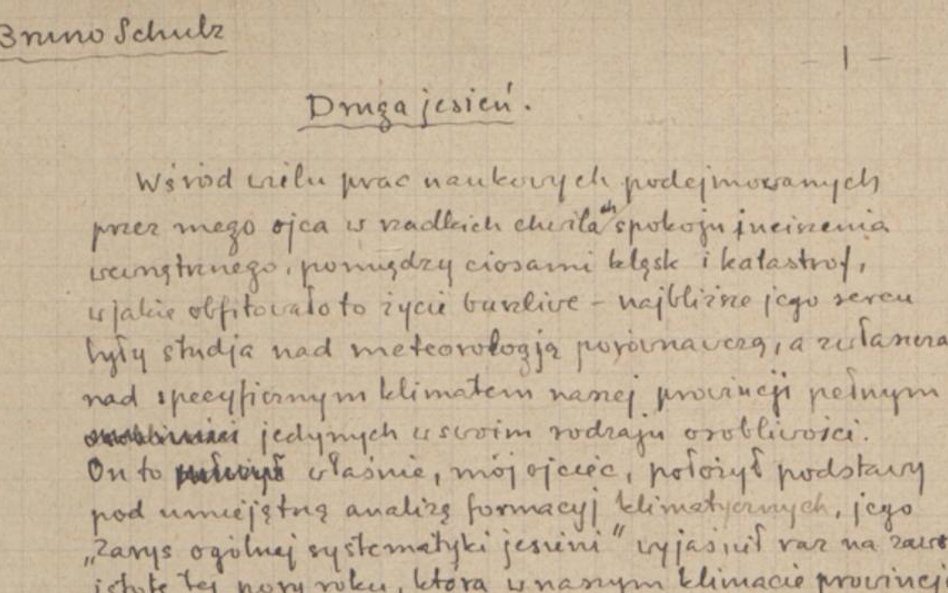 Bruno Schulz
- 1 -
Druga jesień.
Wśród wielu prac naukowych podejmowanych
przez mego ojca w rzadkich chwilach spokoju i uciszenia
wewnętrznego, pomiędzy ciosami klęsk i katastrof,
w jakie obfitowało to życie burzliwe – najbliższe jego sercu
były studja nad meteorologją porównawczą, a zwłaszcza
nad specyficznym klimatem naszej prowincji pełnym
jedynych w swoim rodzaju osobliwości.
On to właśnie, mój ojciec, położył podstawy
pod umiejętną analizę formacyj klimatycznych, jego
„Zarys ogólnej systematyki jesieni" wyjaśnił raz na zawsze
istotę tej pory roku, która w naszym klimacie prowincj